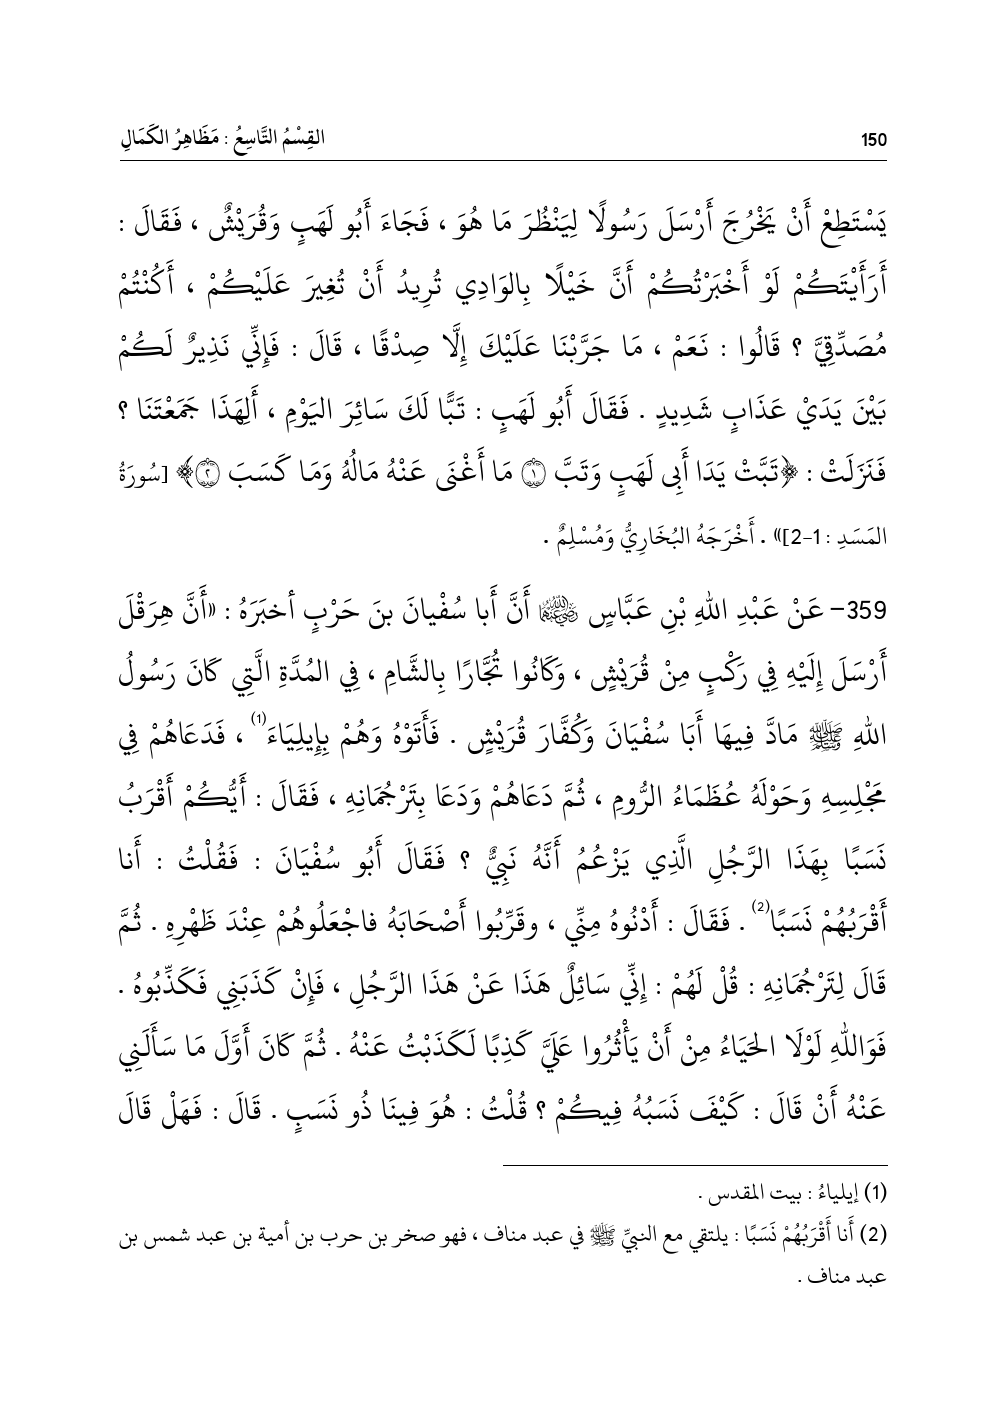 150
القِسْمُ التَّاسِعُ : مَظَاهِرُ الكَمَالِ
يَسْتَطِعْ أَنْ يَخْرُجَ أَرْسَلَ رَسُولًا لِيَنْظُرَ مَا هُوَ ، فَجَاءَ أَبُو لَهَبٍ وَقُرَيْشٌ ، فَقَالَ :
أَرَأَيْتَكُمْ لَوْ أَخْبَرْتُكُمْ أَنَّ خَيْلًا بِالوَادِي تُرِيدُ أَنْ تُغِيرَ عَلَيْكُمْ ، أَكُنْتُمْ
مُصَدِّقِيَّ ؟ قَالُوا : نَعَمْ ، مَا جَرَّبْنَا عَلَيْكَ إِلَّا صِدْقًا ، قَالَ : فَإِنِّي نَذِيرٌ لَكُمْ
بَيْنَ يَدَيْ عَذَابٍ شَدِيدٍ . فَقَالَ أَبُو لَهَبٍ : تَبًّا لَكَ سَائِرَ اليَوْمِ ، أَلِهَذَا جَمَعْتَنَا ؟
فَنَزَلَتْ : ﴿تَبَّتْ يَدَا أَبِى لَهَبٍ وَتَبَّ ۝١ مَا أَغْنَى عَنْهُ مَالُهُ وَمَا كَسَبَ ۝٢﴾ [سُورَةُ
المَسَدِ : 1-2]» . أَخْرَجَهُ البُخَارِيُّ وَمُسْلِمٌ .
359- عَنْ عَبْدِ اللهِ بْنِ عَبَّاسٍ رضي الله عنهما أَنَّ أَبا سُفْيانَ بنَ حَرْبٍ أخبَرَهُ : «أَنَّ هِرَقْلَ
أَرْسَلَ إِلَيْهِ فِي رَكْبٍ مِنْ قُرَيْشٍ ، وَكَانُوا تُجَّارًا بِالشَّامِ ، فِي المُدَّةِ الَّتِي كَانَ رَسُولُ
اللهِ ﷺ مَادَّ فِيهَا أَبَا سُفْيَانَ وَكُفَّارَ قُرَيْشٍ . فَأَتَوْهُ وَهُمْ بِإِيلِيَاءَ(1) ، فَدَعَاهُمْ فِي
مَجْلِسِهِ وَحَوْلَهُ عُظَمَاءُ الرُّومِ ، ثُمَّ دَعَاهُمْ وَدَعَا بِتَرْجُمَانِهِ ، فَقَالَ : أَيُّكُمْ أَقْرَبُ
نَسَبًا بِهَذَا الرَّجُلِ الَّذِي يَزْعُمُ أَنَّهُ نَبِيٌّ ؟ فَقَالَ أَبُو سُفْيَانَ : فَقُلْتُ : أَنا
أَقْرَبُهُمْ نَسَبًا(2) . فَقَالَ : أَدْنُوهُ مِنِّي ، وقَرِّبُوا أَصْحَابَهُ فاجْعَلُوهُمْ عِنْدَ ظَهْرِهِ . ثُمَّ
قَالَ لِتَرْجُمَانِهِ : قُلْ لَهُمْ : إِنِّي سَائِلٌ هَذَا عَنْ هَذَا الرَّجُلِ ، فَإِنْ كَذَبَنِي فَكَذِّبُوهُ .
فَوَاللهِ لَوْلَا الحَيَاءُ مِنْ أَنْ يَأْثُرُوا عَلَيَّ كَذِبًا لَكَذَبْتُ عَنْهُ . ثُمَّ كَانَ أَوَّلَ مَا سَأَلَنِي
عَنْهُ أَنْ قَالَ : كَيْفَ نَسَبُهُ فِيكُمْ ؟ قُلْتُ : هُوَ فِينَا ذُو نَسَبٍ . قَالَ : فَهَلْ قَالَ
(1) إيلياءُ : بيت المقدس .
(2) أَنا أَقْرَبُهُمْ نَسَبًا : يلتقي مع النبيِّ ﷺ في عبد مناف ، فهو صخر بن حرب بن أمية بن عبد شمس بن
عبد مناف .